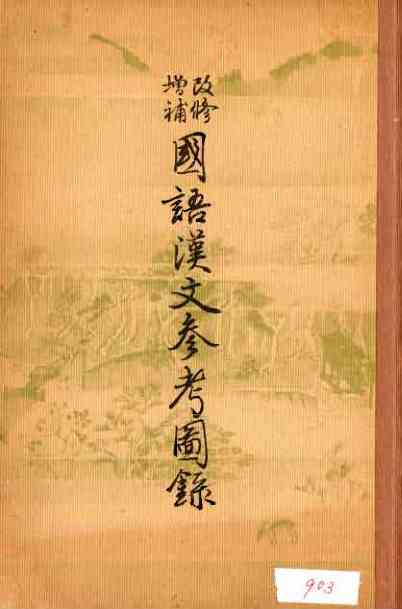 改修
增補
國語漢文參考圖錄
903